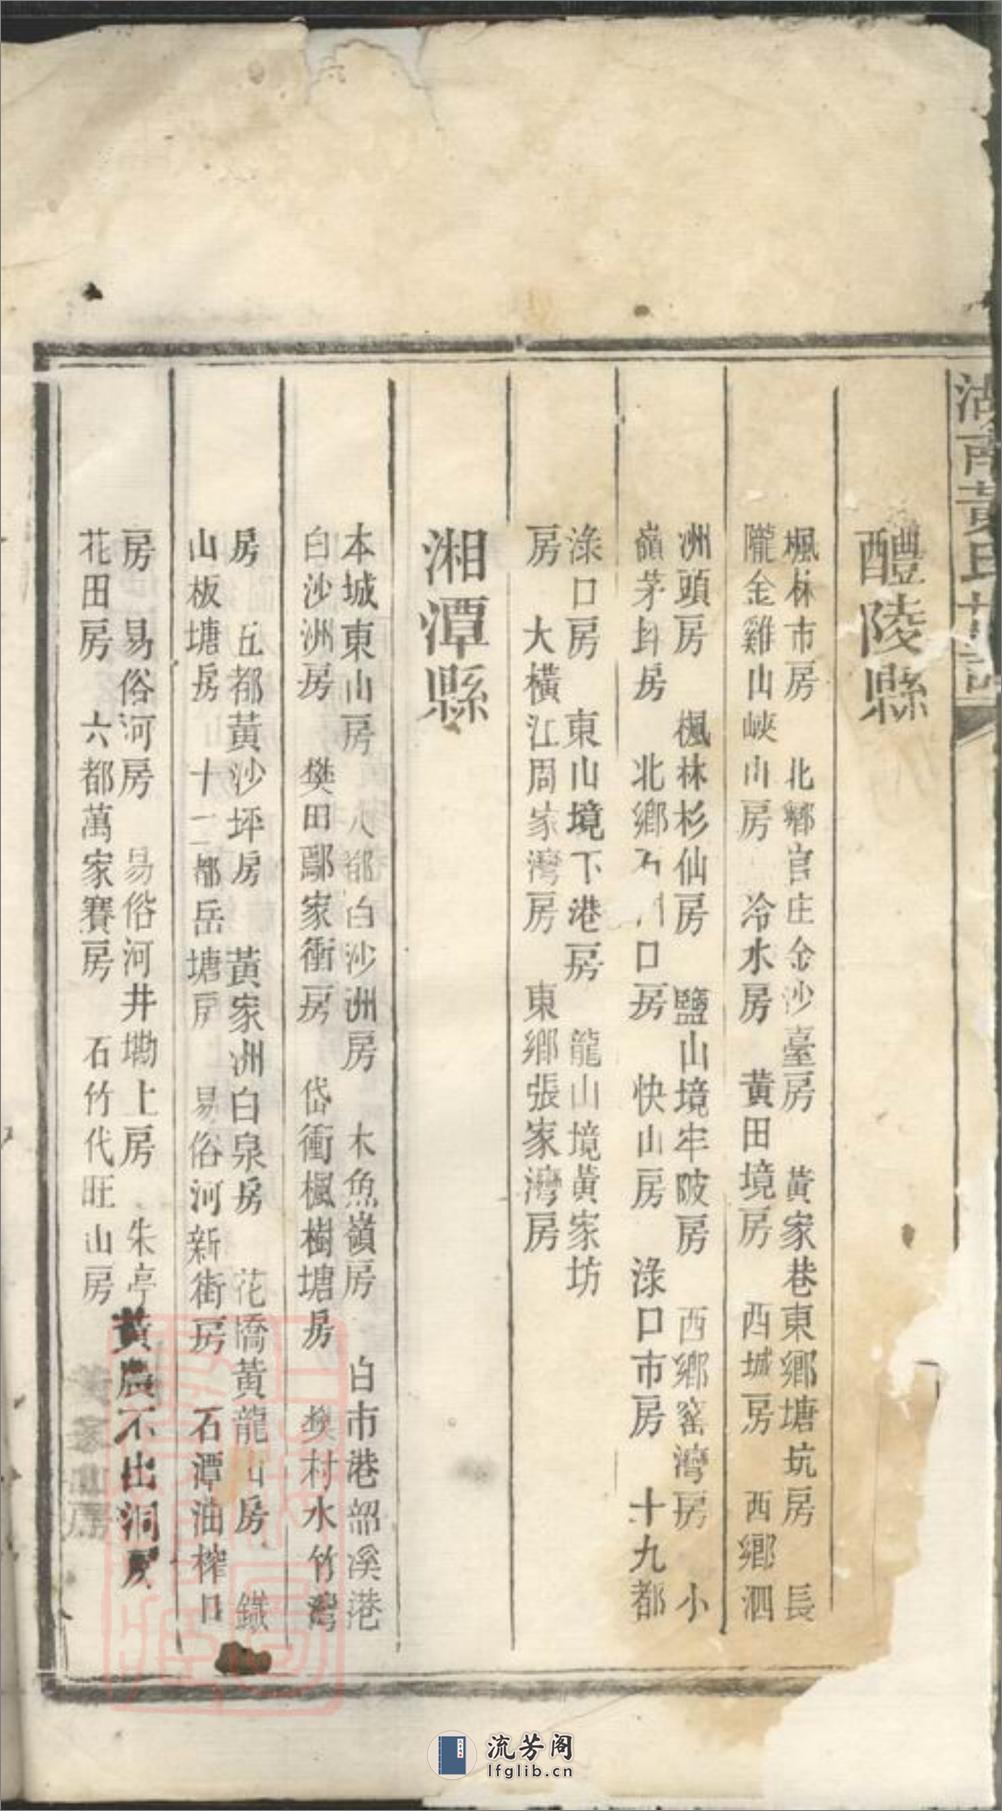 湖南黃氏
醴陵縣
楓林市房 北鄉官庄金沙臺房 黃家巷東鄉塘坑房 長
隴金雞山峽山房 冷水房 黃田境房 西城房 西鄉泗
洲頭房 楓林杉仙房 鹽山境牢陂房 西鄉窰灣房 小
嶺茅房 北鄉口房 快山房 淥口市房 十九都
淥口房 東山境下港房 龍山境黃家坊
房 大橫江周家灣房 東鄉張家灣房
湘潭縣
本城東山房 八都白沙洲房 木魚嶺房 白市港韶溪港
白沙洲房 樊田鄢家衝房 岱衝楓樹塘房 村水竹灣
房 五都黃沙坪房 黃家洲白泉房 花橋黃龍山房 鐵
山板塘房 十二都岳塘房 易俗河新街房 石潭油榨口
房 易俗河房 易俗河井塝上房 朱亭黃農不出洞房
花田房 六都萬家賽房 石竹代旺山房
流芳阁
lfglib.cn